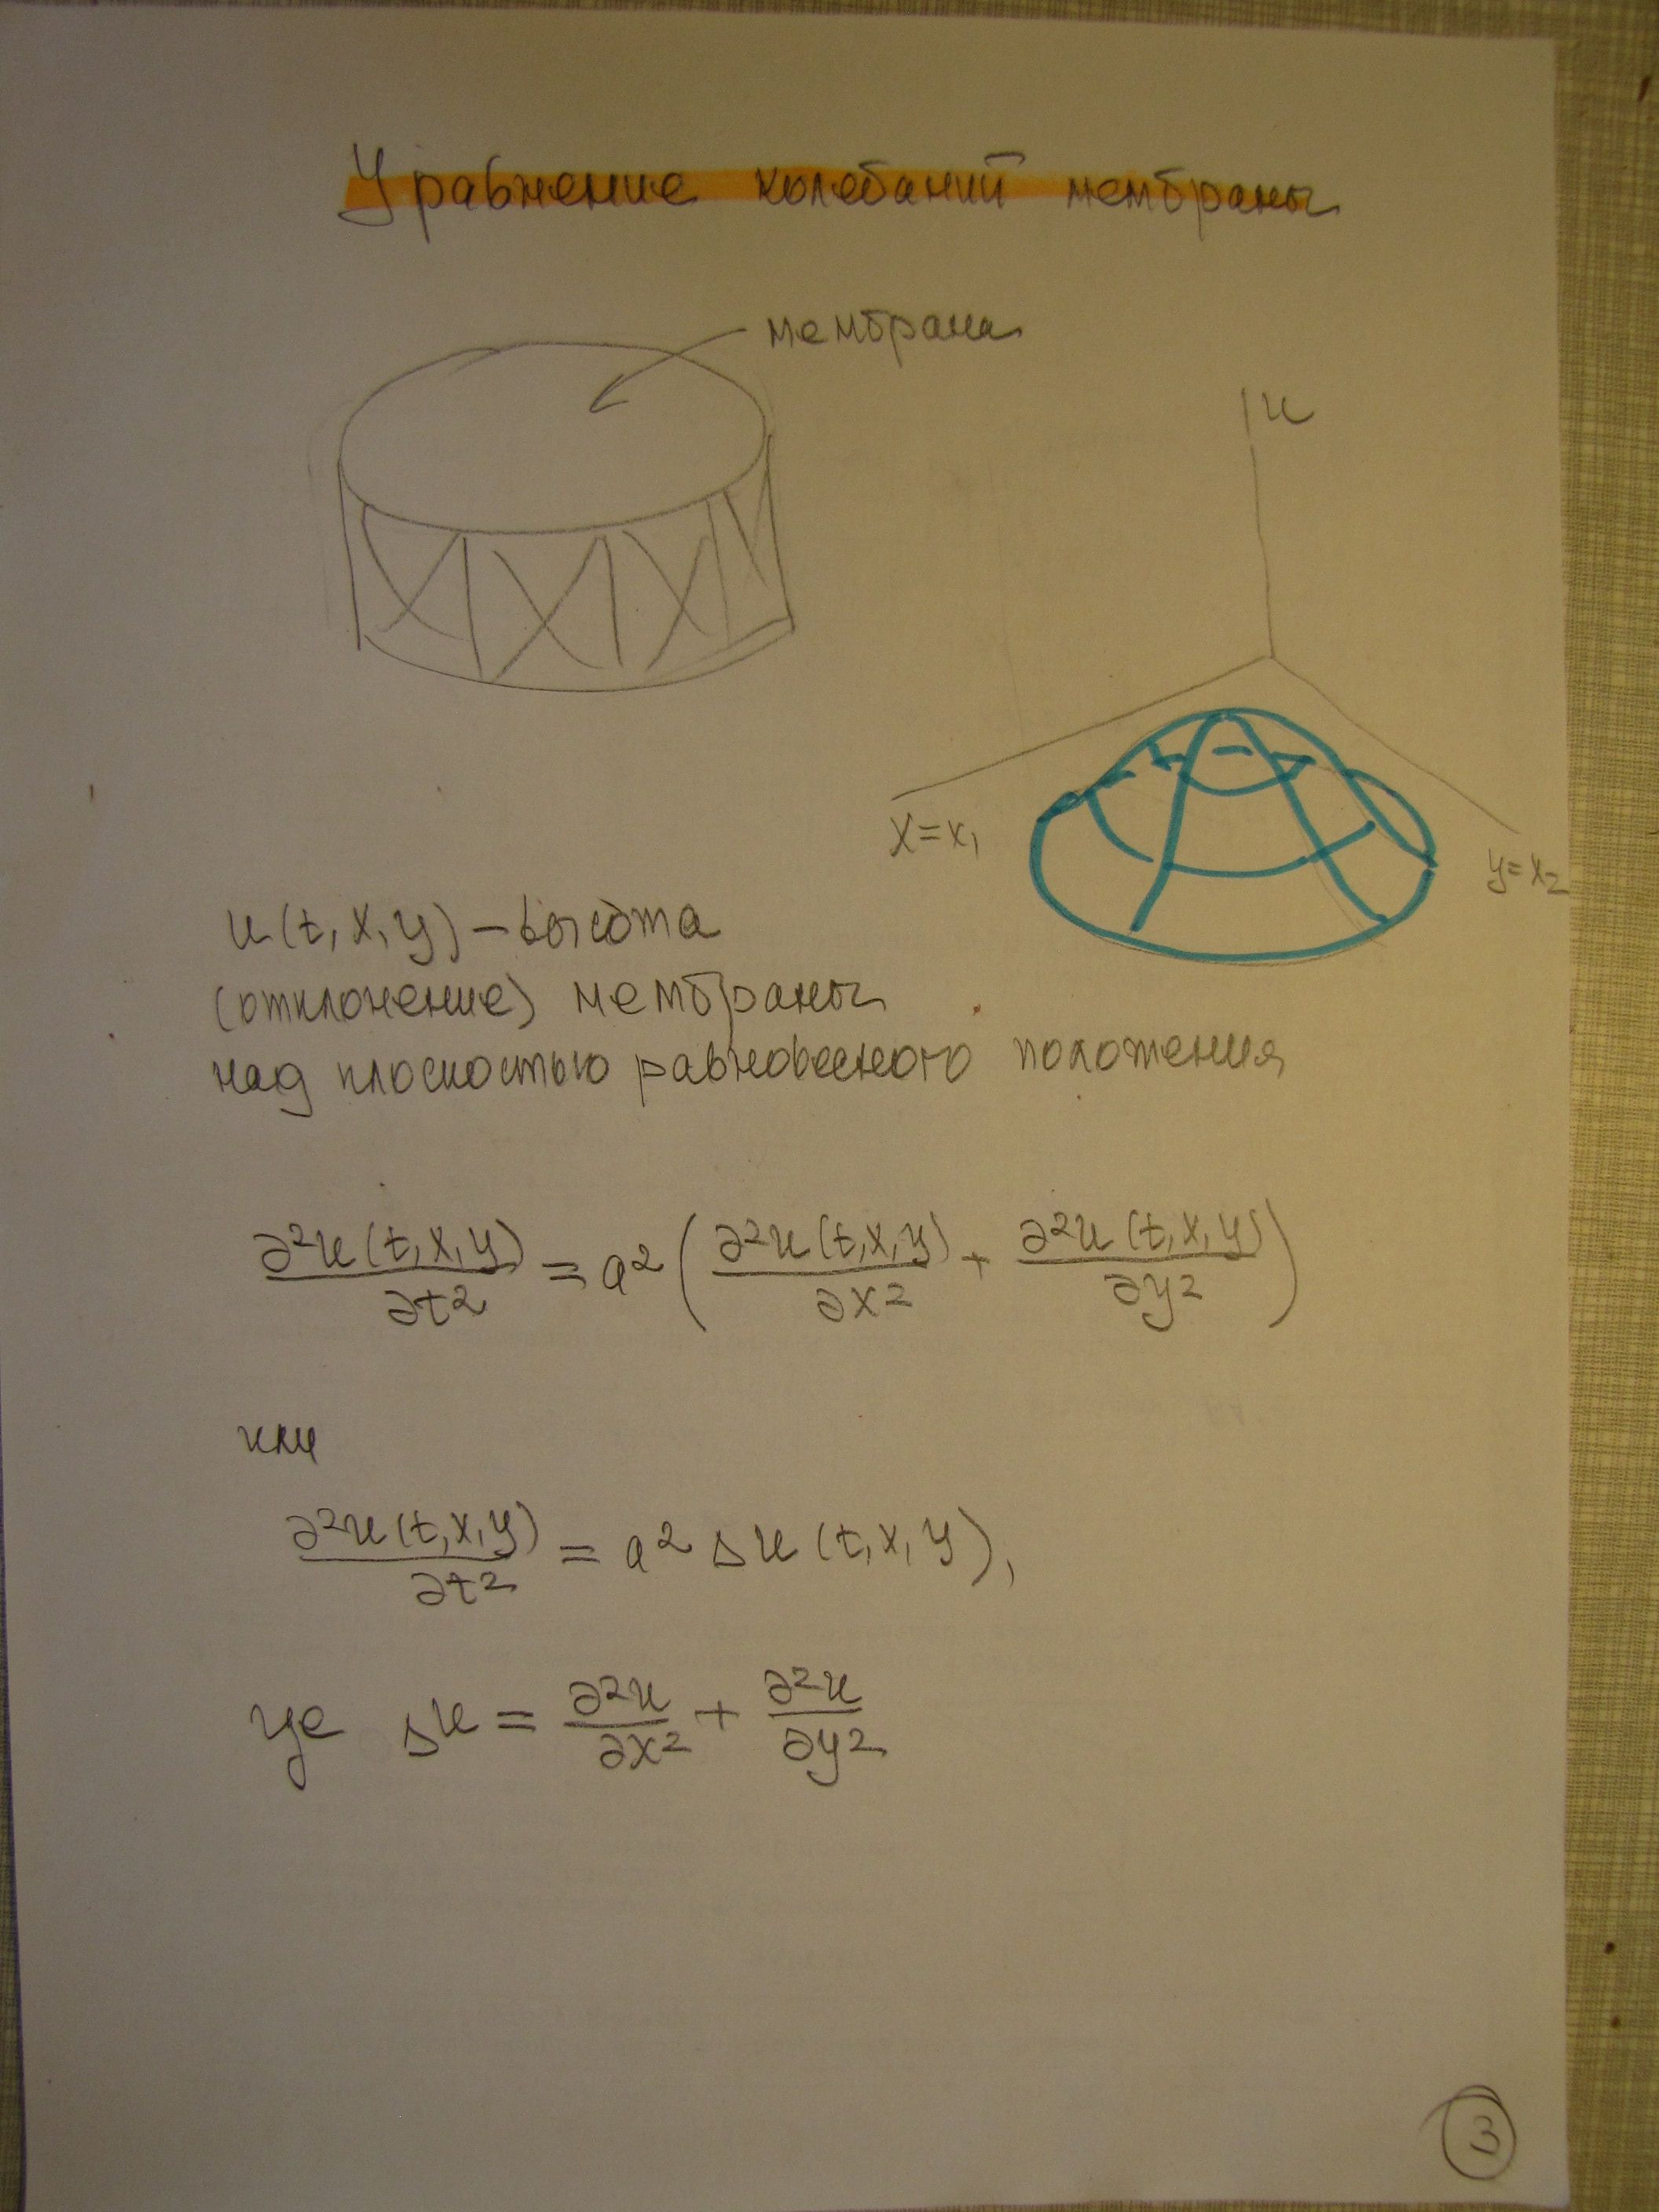 Уравнение колебаний мембраны
мембрана
u
x=x₁
y=x₂
u(t,x,y) – высота
(отклонение) мембраны
над плоскостью равновесного положения
∂²u(t,x,y)/∂t² = a² (∂²u(t,x,y)/∂x² + ∂²u(t,x,y)/∂y²)
или
∂²u(t,x,y)/∂t² = a² Δu(t,x,y),
где Δu = ∂²u/∂x² + ∂²u/∂y²
3